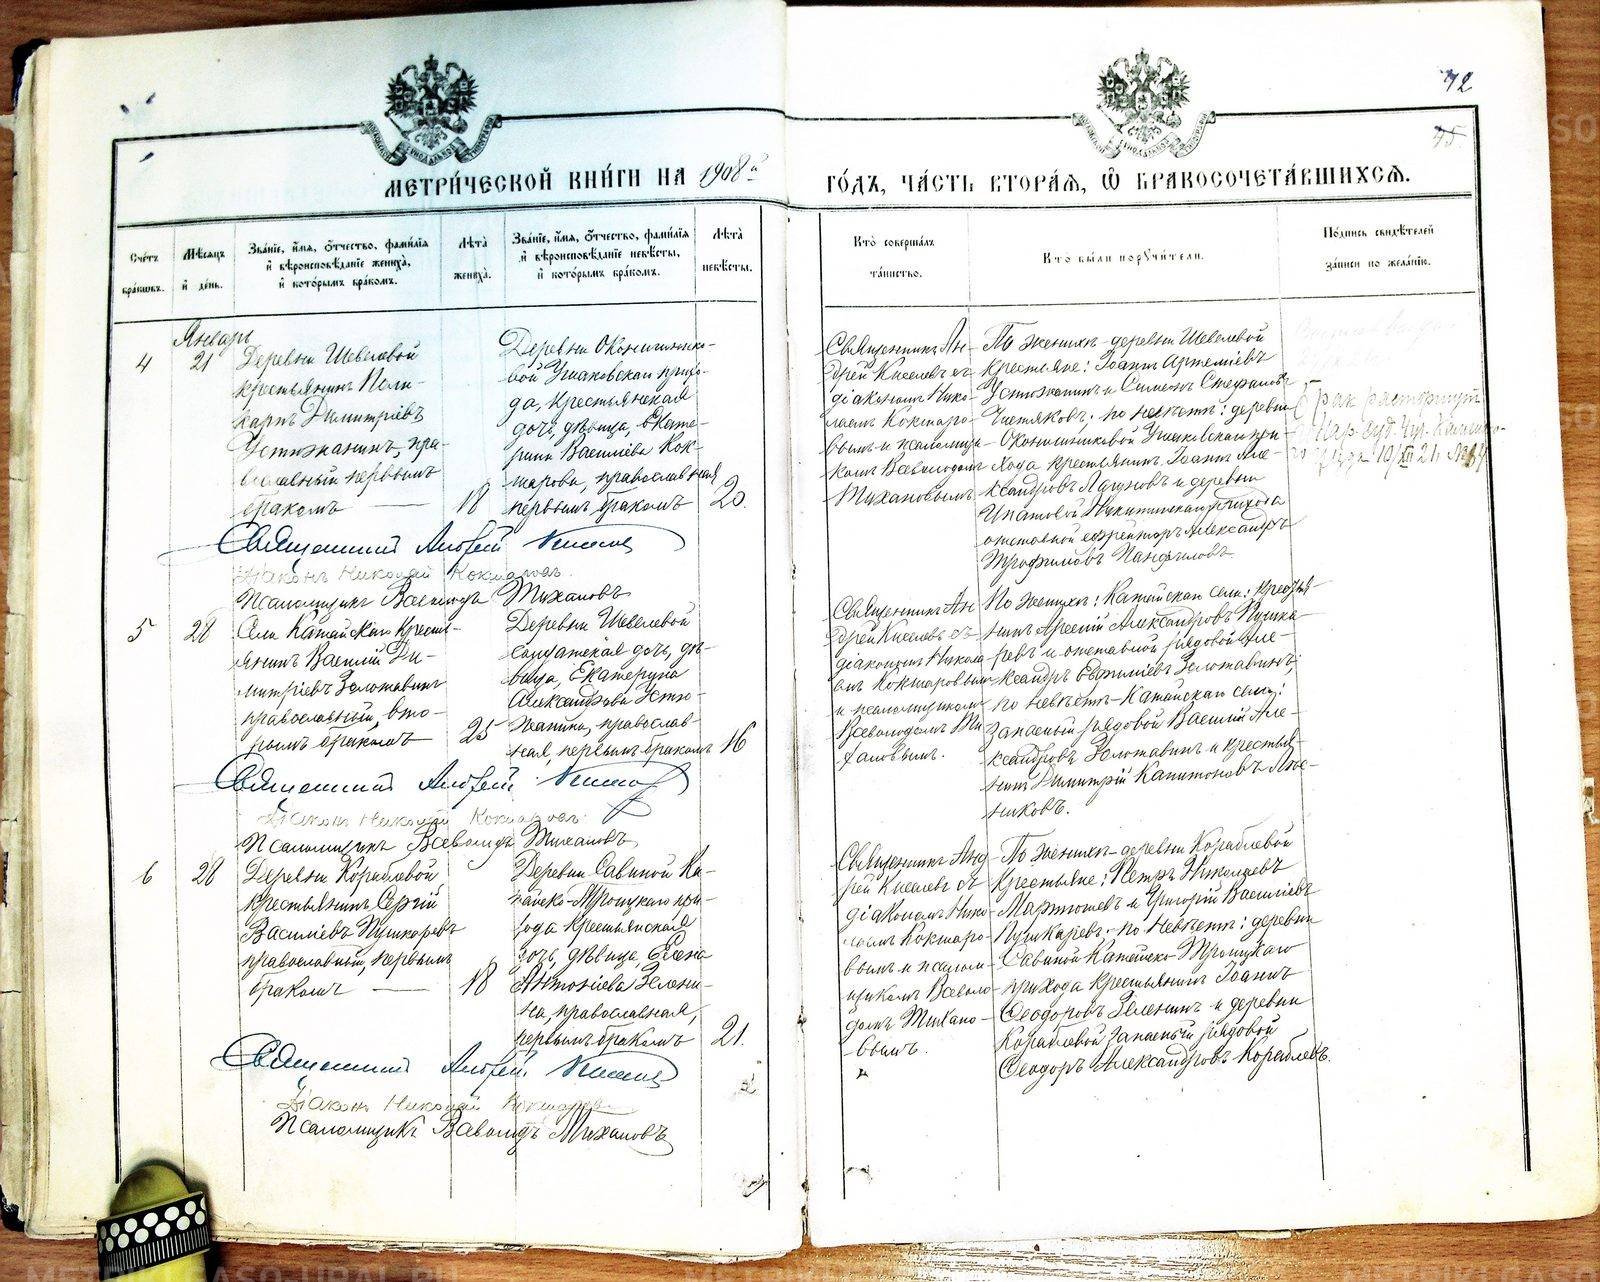 72
75
МЕТРИ́ЧЕСКОЙ КНИ́ГИ НА 1908й
ГО́ДЪ, ЧА́СТЬ ВТОРА́Я, Ѿ БРАКОСОЧЕТА́ВШИХСЯ.
Счетъ браковъ.
Мѣсяцъ и день.
Званіе, имя, отчество, фамилія
и вѣроисповѣданіе жениха,
и которымъ бракомъ.
Лѣта
жениха.
Званіе, имя, отчество, фамилія
и вѣроисповѣданіе невѣсты,
и которымъ бракомъ.
Лѣта
невѣсты.
Кто совершалъ
таинство.
Кто были поручители.
Подпись свидѣтелей
записи по желанію.
4
Январь
21
Деревни Шевелевой
крестьянинъ Поли-
карпъ Димитріевъ
Устюжанинъ, пра-
вославный первымъ
бракомъ
18
Деревни Оконишнико-
вой Ушаковскаго прихо-
да, крестьянская
дочь, дѣвица, Екате-
рина Васильева Кок-
шарова, православная
первымъ бракомъ
20.
Священникъ Ан-
дрей Киселевъ съ
діакономъ Нико-
лаемъ Кокшаро-
вымъ и псаломщи-
комъ Всеволодомъ
Тихановымъ
По женихѣ деревни Шевелевой
крестьяне: Іоаннъ Артеміевъ
Устюжанинъ и Симеонъ Стефановъ
Чистяковъ; по невѣстѣ: деревни
Оконишниковой Ушаковскаго при-
хода крестьянинъ Іоаннъ Але-
ксандровъ и деревни
Ипатовой Никитинскаго прихода
отставной ефрейторъ Александръ
Трофимовъ Панфиловъ
Брак расторгнут
Нар. суд.
10/XII 21г.
Священникъ Андрей Киселевъ
Діаконъ Николай Кокшаровъ.
Псаломщикъ Всеволодъ Тихановъ
5
28
Села Катайскаго кресть-
янинъ Василій Ди-
митріевъ Золотавинъ
православный, вто-
рымъ бракомъ
25
Деревни Шевелевой
солдатская дочь, дѣ-
вица, Екатерина
Александрова Устю-
жанина, православ-
ная, первымъ бракомъ
16
Священникъ Ан-
дрей Киселевъ съ
діакономъ Никола-
емъ Кокшаровымъ
и псаломщикомъ
Всеволодомъ Ти-
хановымъ.
По женихѣ: Катайскаго села: кресть-
янинъ Арсеній Александровъ Пушка-
ревъ и отставной рядовой Але-
ксандръ Золотавинъ;
по невѣстѣ Катайскаго села:
запасный рядовой Василій Але-
ксандровъ Золотавинъ и крестья-
нинъ Димитрій Капитоновъ
Священникъ Андрей Киселевъ
Діаконъ Николай Кокшаровъ.
Псаломщикъ Всеволодъ Тихановъ
6
28
Деревни Кораблевой
крестьянинъ Сергій
Василіевъ Пушкаревъ
православный, первымъ
бракомъ
18
Деревни Савиной Ка-
тайско-Троицкаго при-
хода крестьянская
дочь, дѣвица, Елена
Антоніева Зелени-
на, православная,
первымъ бракомъ
21.
Священникъ Анд-
рей Киселевъ съ
діакономъ Нико-
лаемъ Кокшаро-
вымъ и псалом-
щикомъ Всеволо-
домъ Тихано-
вымъ.
По женихѣ деревни Кораблевой
крестьяне: Петръ Николаевъ
Мартюшевъ и Григорій Василіевъ
Пушкаревъ; по невѣстѣ: деревни
Савиной Катайско-Троицкаго
прихода крестьянинъ Іоаннъ
Ѳеодоровъ Зеленинъ и деревни
Кораблевой запасный рядовой
Ѳеодоръ Александровъ Кораблевъ.
Священникъ Андрей Киселевъ
Діаконъ Николай Кокшаровъ
Псаломщикъ Всеволодъ Тихановъ